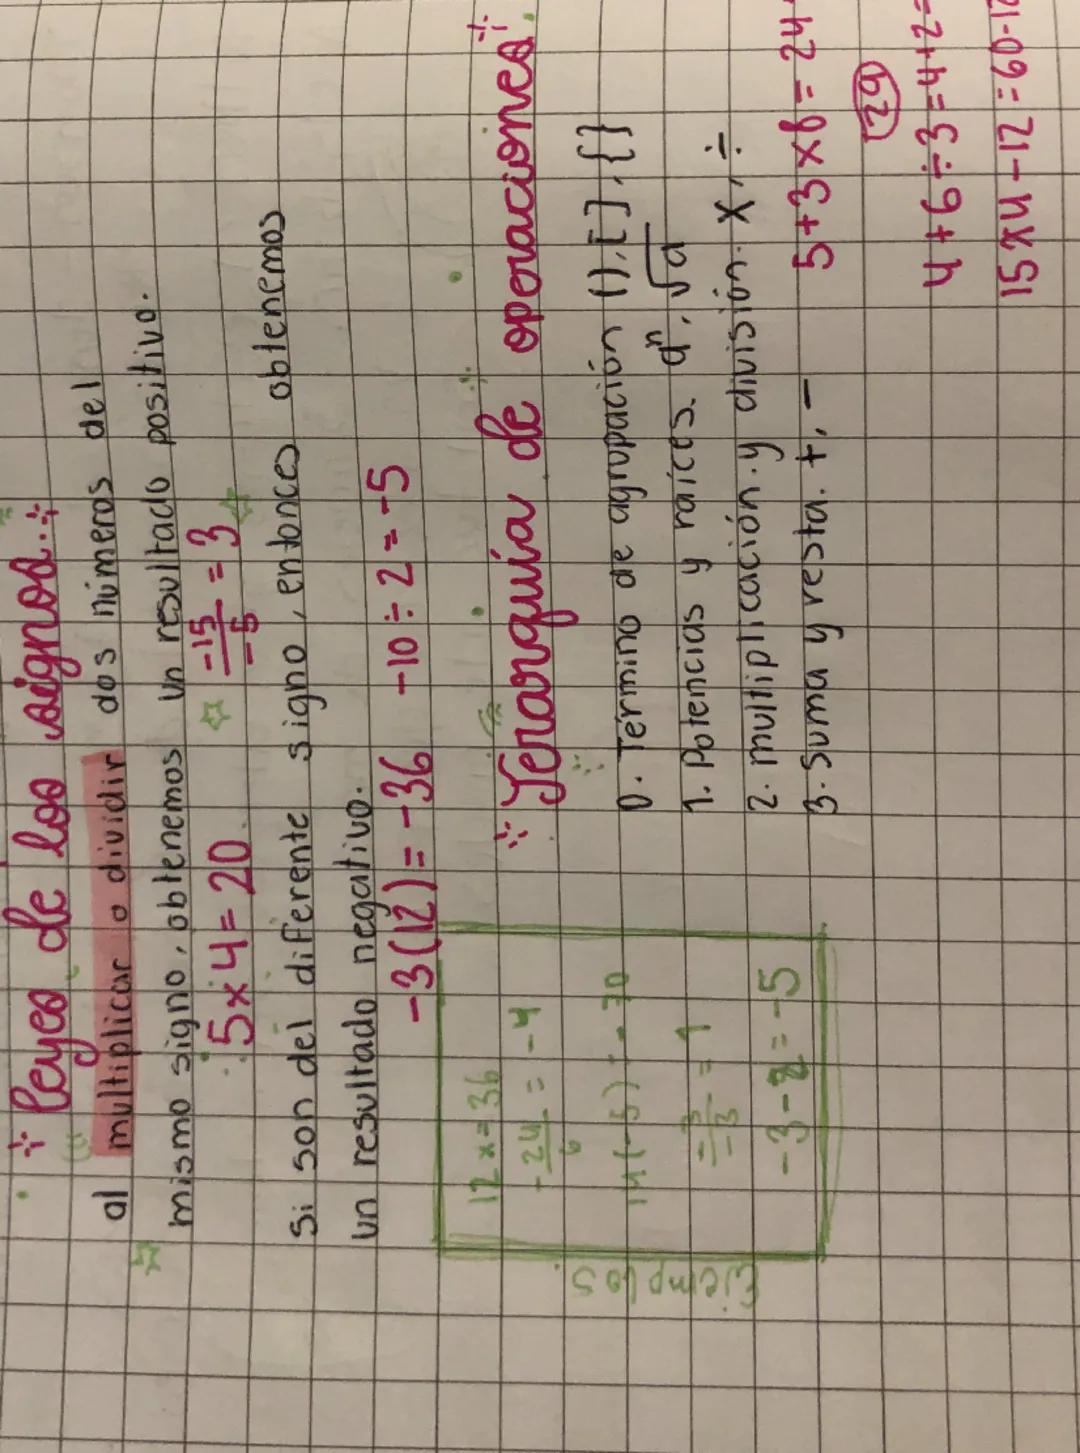 Leyes de los signos
al multiplicar o dividir dos números del
mismo signo, obtenemos un resultado positivo.
5x4=20 -15/-5 = 3
Si son del diferente signo, entonces obtenemos
un resultado negativo.
-3(12)=-36 -10÷2=-5
Ejemplos.
12x=36
-24/6 = -4
14(-5)=-70
-3/-3 = 1
-3-2=-5
Jerarquía de operaciones
0. Término de agrupación (),[],{}
1. Potencias y raíces. aⁿ, √a
2. multiplicación y división. x, ÷
3. Suma y resta. +, -
5+3x8=24
29
4+6÷3=4+2=
15x4-12=60-12